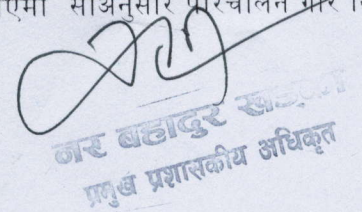 एमा सोअनुसार परिचालन गरि
नर बहादुर खड्का
प्रमुख प्रशासकीय अधिकृत